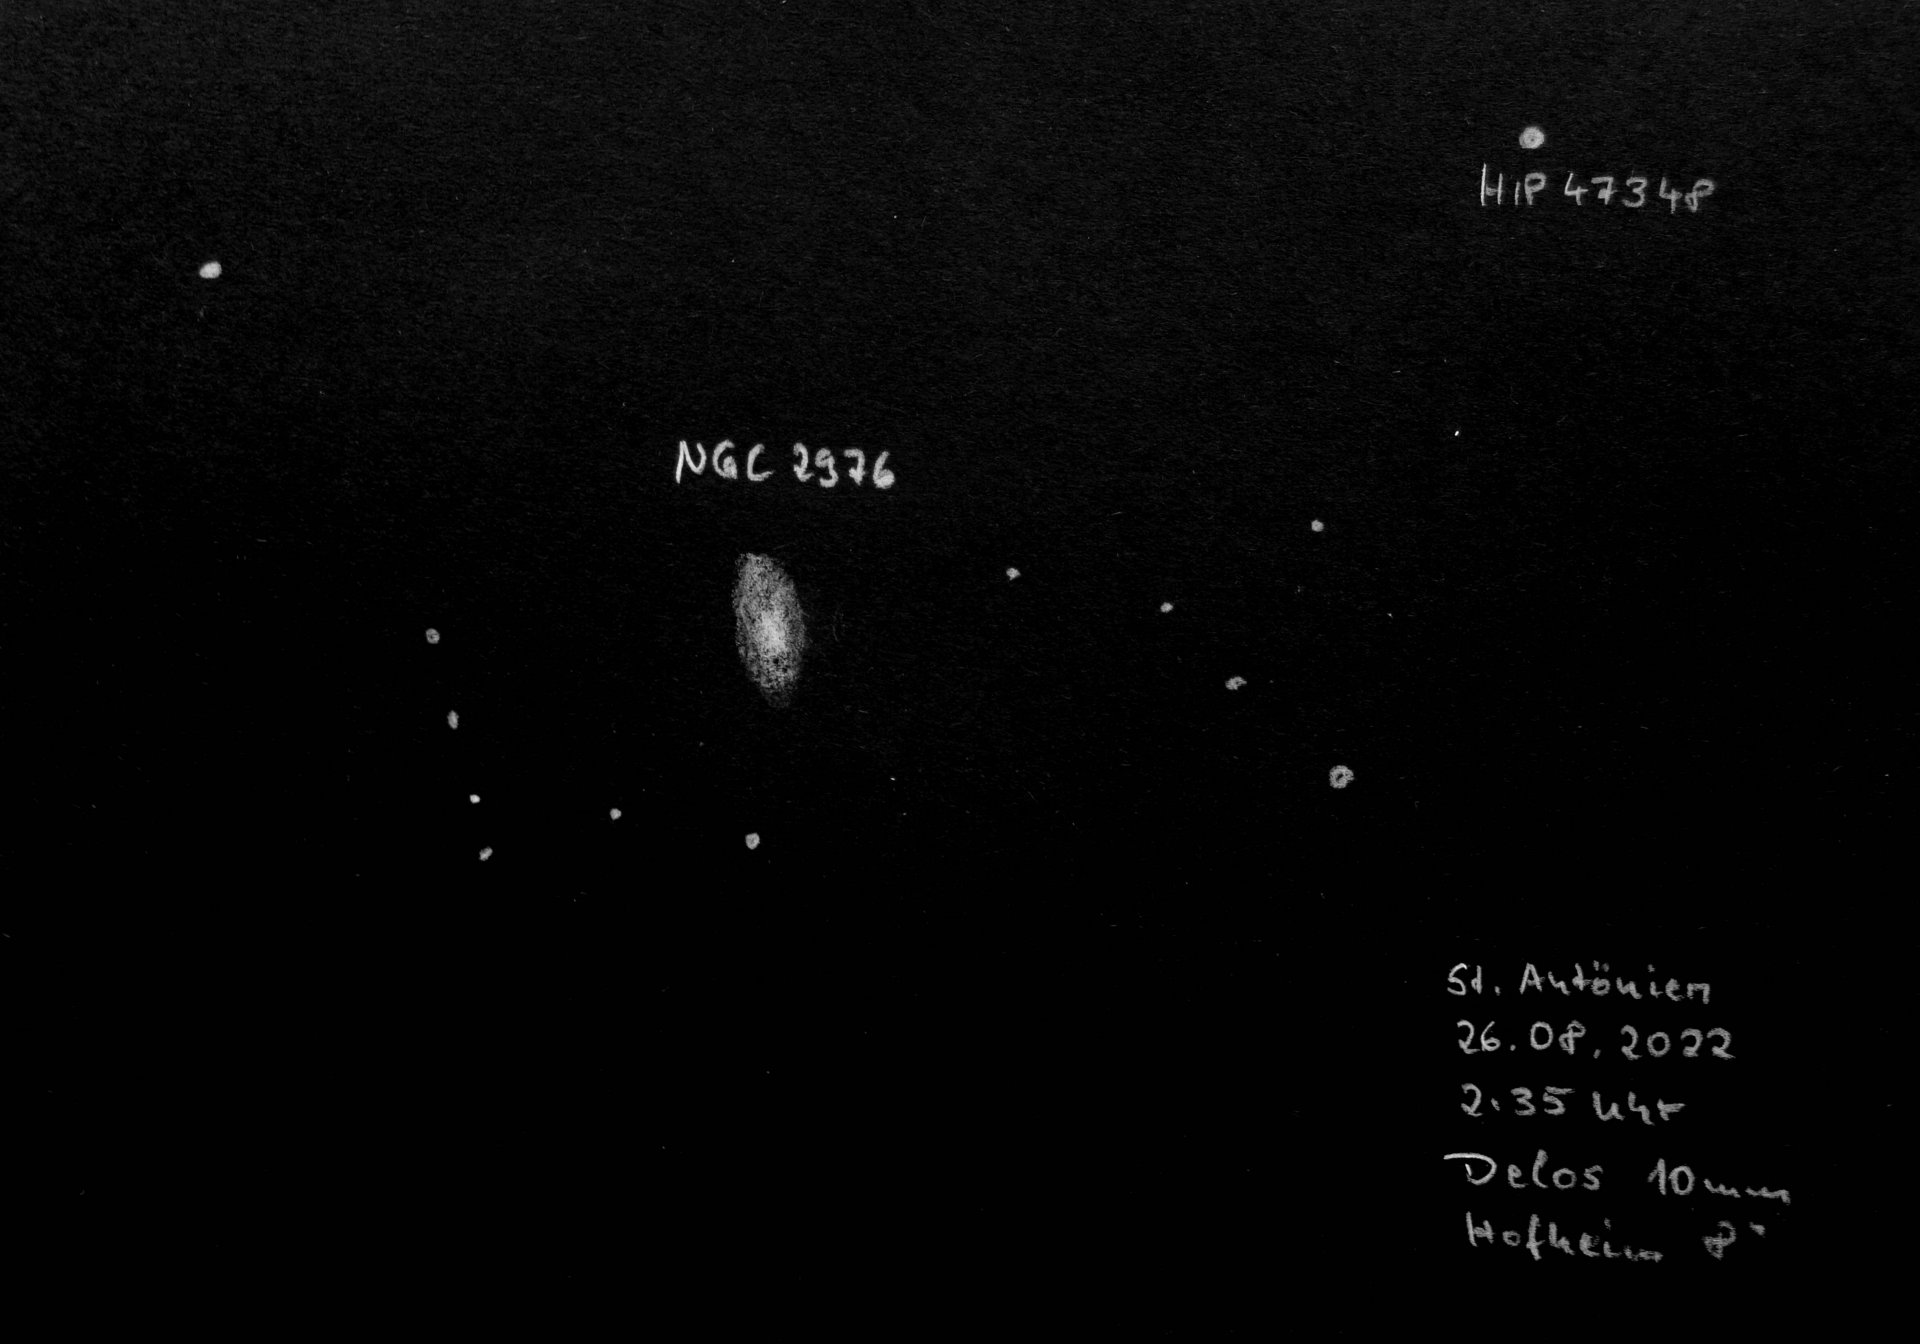 HIP 47348
NGC 2976
St. Antönien
26.08.2022
2.35 Uhr
Delos 10mm
Hofheim 8"